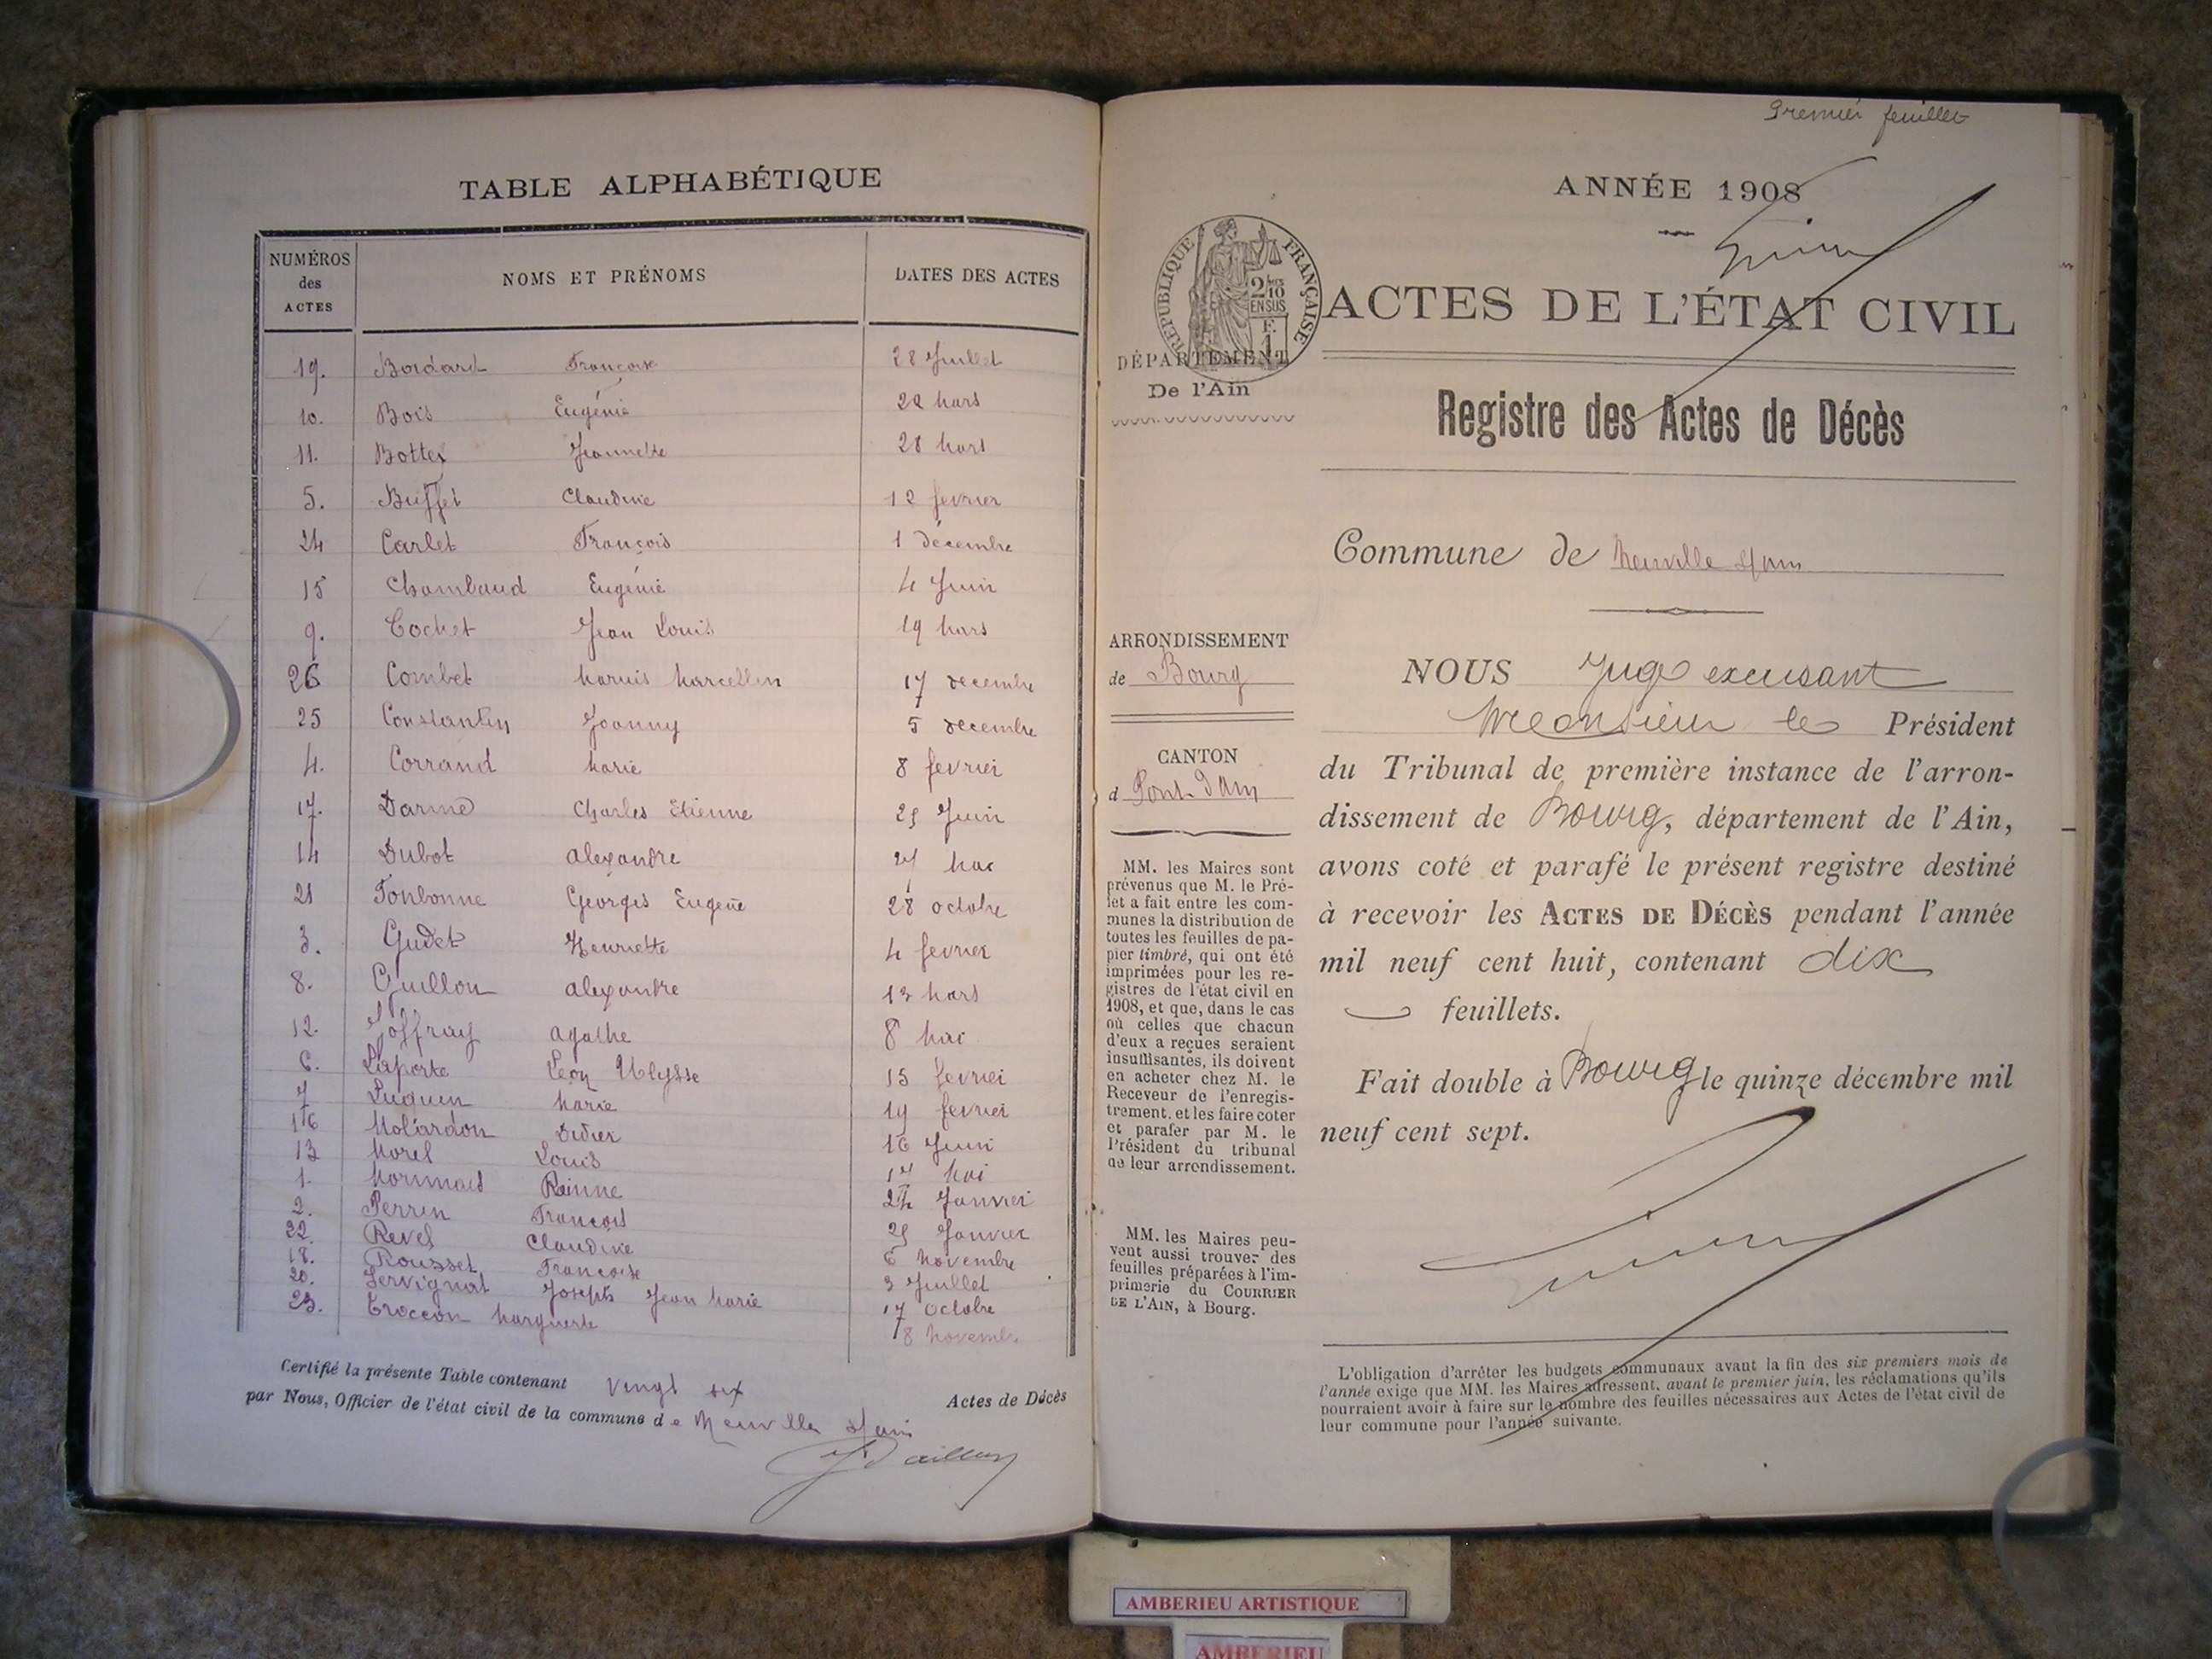 TABLE ALPHABÉTIQUE
NUMÉROS des ACTES
NOMS ET PRÉNOMS
DATES DES ACTES
19. Bordard Françoise 28 Juillet
10. Bois Eugénie 22 Mars
11. Bottex Jeannette 28 Mars
5. Buffet Claudine 12 fevrier
24 Carlet François 1 décembre
15 Chambaud Eugénie 4 Juin
9. Cochet Jean Louis 19 Mars
26 Combet Marius Marcellin 17 decembre
25 Constantin Joanny 5 decembre
4. Corrand Marie 8 fevrier
17. Darme Charles Etienne 25 Juin
14 Dubot Alexandre 27 Mai
21 Fonbonne Georges Eugene 28 octobre
3. Gudet Henriette 4 fevrier
8. Guillon Alexandre 13 Mars
12. Joffray Agathe 8 Mai
6. Laporte Leon Ulysse 15 fevrier
7 Luquin Marie 19 fevrier
16 Molardon Didier 16 Juin
13 Morel Louis 1er Mai
1. 24 Janvier
2. Perrin François 25 Janvier
22. Revel Claudine 6 Novembre
18. Rousset Françoise 3 Juillet
20. Servignat Joseph Jean Marie 17 Octobre
23. Troccon Marguerite 8 Novembre
Certifié la présente Table contenant vingt six Actes de Décès
par Nous, Officier de l'état civil de la commune de Neuville s/ Ain
Premier feuillet
ANNÉE 1908
RÉPUBLIQUE FRANÇAISE
2/10 EN SUS
ACTES DE L'ÉTAT CIVIL
DÉPARTEMENT
De l'Ain
Registre des Actes de Décès
Commune de Neuville s/ Ain
ARRONDISSEMENT
de Bourg
CANTON
d Pont d'Ain
MM. les Maires sont
prévenus que M. le Pré-
fet a fait entre les com-
munes la distribution de
toutes les feuilles de pa-
pier timbré, qui ont été
imprimées pour les re-
gistres de l'état civil en
1908, et que, dans le cas
où celles que chacun
d'eux a reçues seraient
insuffisantes, ils doivent
en acheter chez M. le
Receveur de l'enregis-
trement, et les faire coter
et parafer par M. le
Président du tribunal
de leur arrondissement.
MM. les Maires peu-
vent aussi trouver des
feuilles préparées à l'im-
primerie du COURRIER
DE L'AIN, à Bourg.
NOUS Juge excusant
Monsieur le Président
du Tribunal de première instance de l'arron-
dissement de Bourg, département de l'Ain,
avons coté et parafé le présent registre destiné
à recevoir les ACTES DE DÉCÈS pendant l'année
mil neuf cent huit, contenant dix
feuillets.
Fait double à Bourg le quinze décembre mil
neuf cent sept.
L'obligation d'arrêter les budgets communaux avant la fin des six premiers mois de
l'année exige que MM. les Maires adressent, avant le premier juin, les réclamations qu'ils
pourraient avoir à faire sur le nombre des feuilles nécessaires aux Actes de l'état civil de
leur commune pour l'année suivante.
AMBERIEU ARTISTIQUE
AMBERIEU